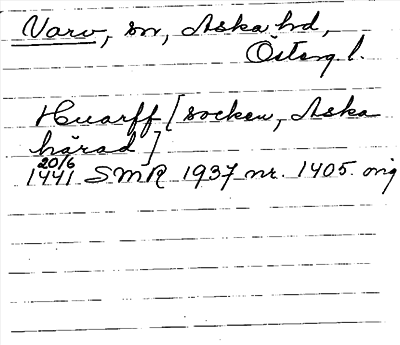 Varv, sn, Aska hd,
Österg l.
Huarff [socken, Aska
härad]
20/6
1441 SMR 1937 nr. 1405. orig